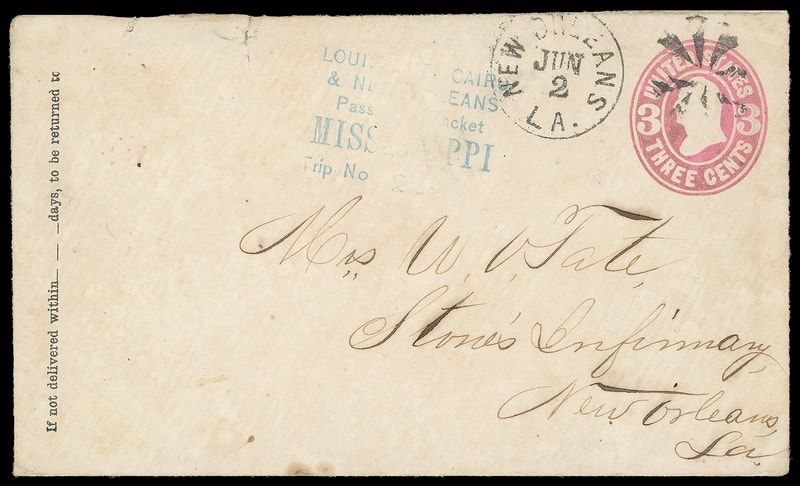 If not delivered within ___ days, to be returned to
LOUIS CAIR
& N EANS
Pass cket
MISS PPI
Trip No
NEW ORLEANS
JUN
2
LA.
UNITED STATES
3 3
THREE CENTS
Mrs W. O. Tate,
Stone's Infirmary,
New Orleans,
La